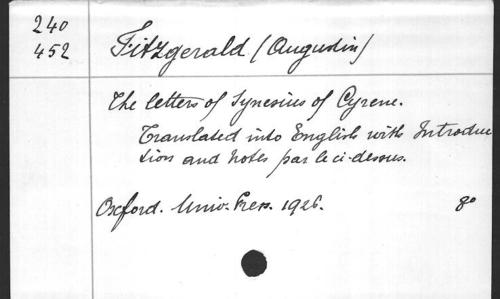 240
452
Fitzgerald (Augustin)
The letters of Synesius of Cyrene.
Translated into English with Introduc
tion and notes par le ci-dessus.
Oxford. Univ. Press. 1926. 8º